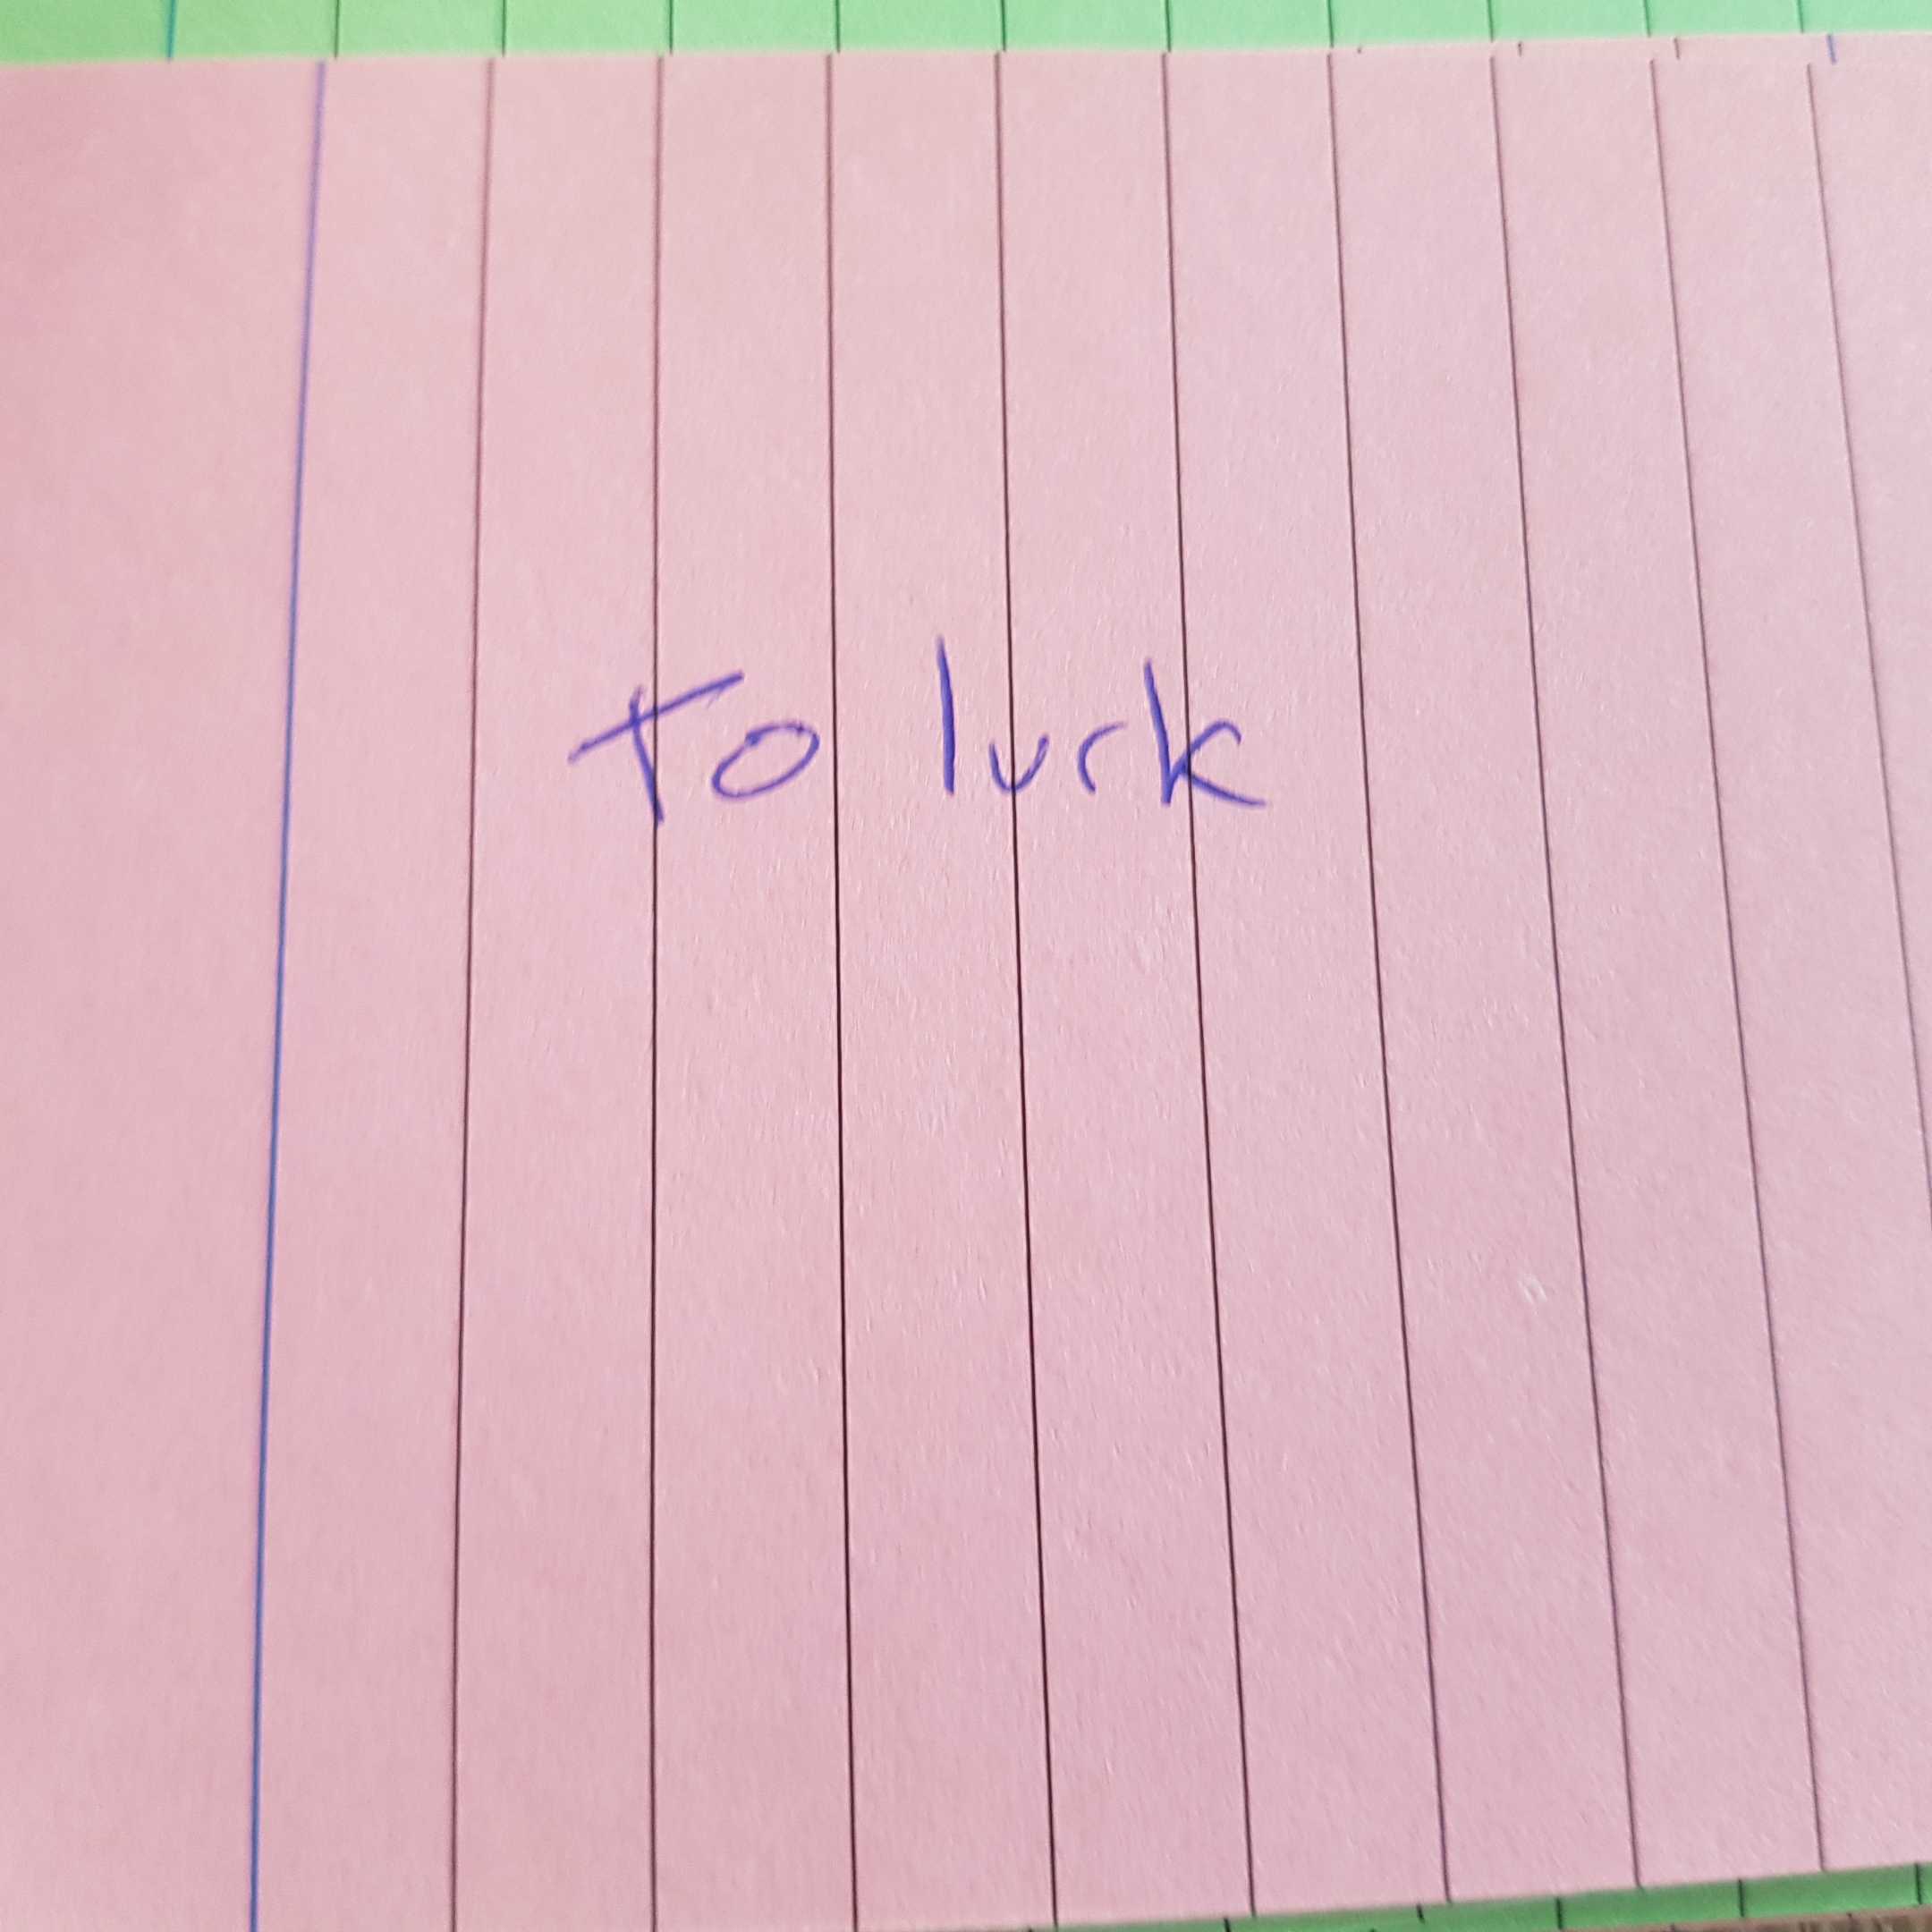 To lurk